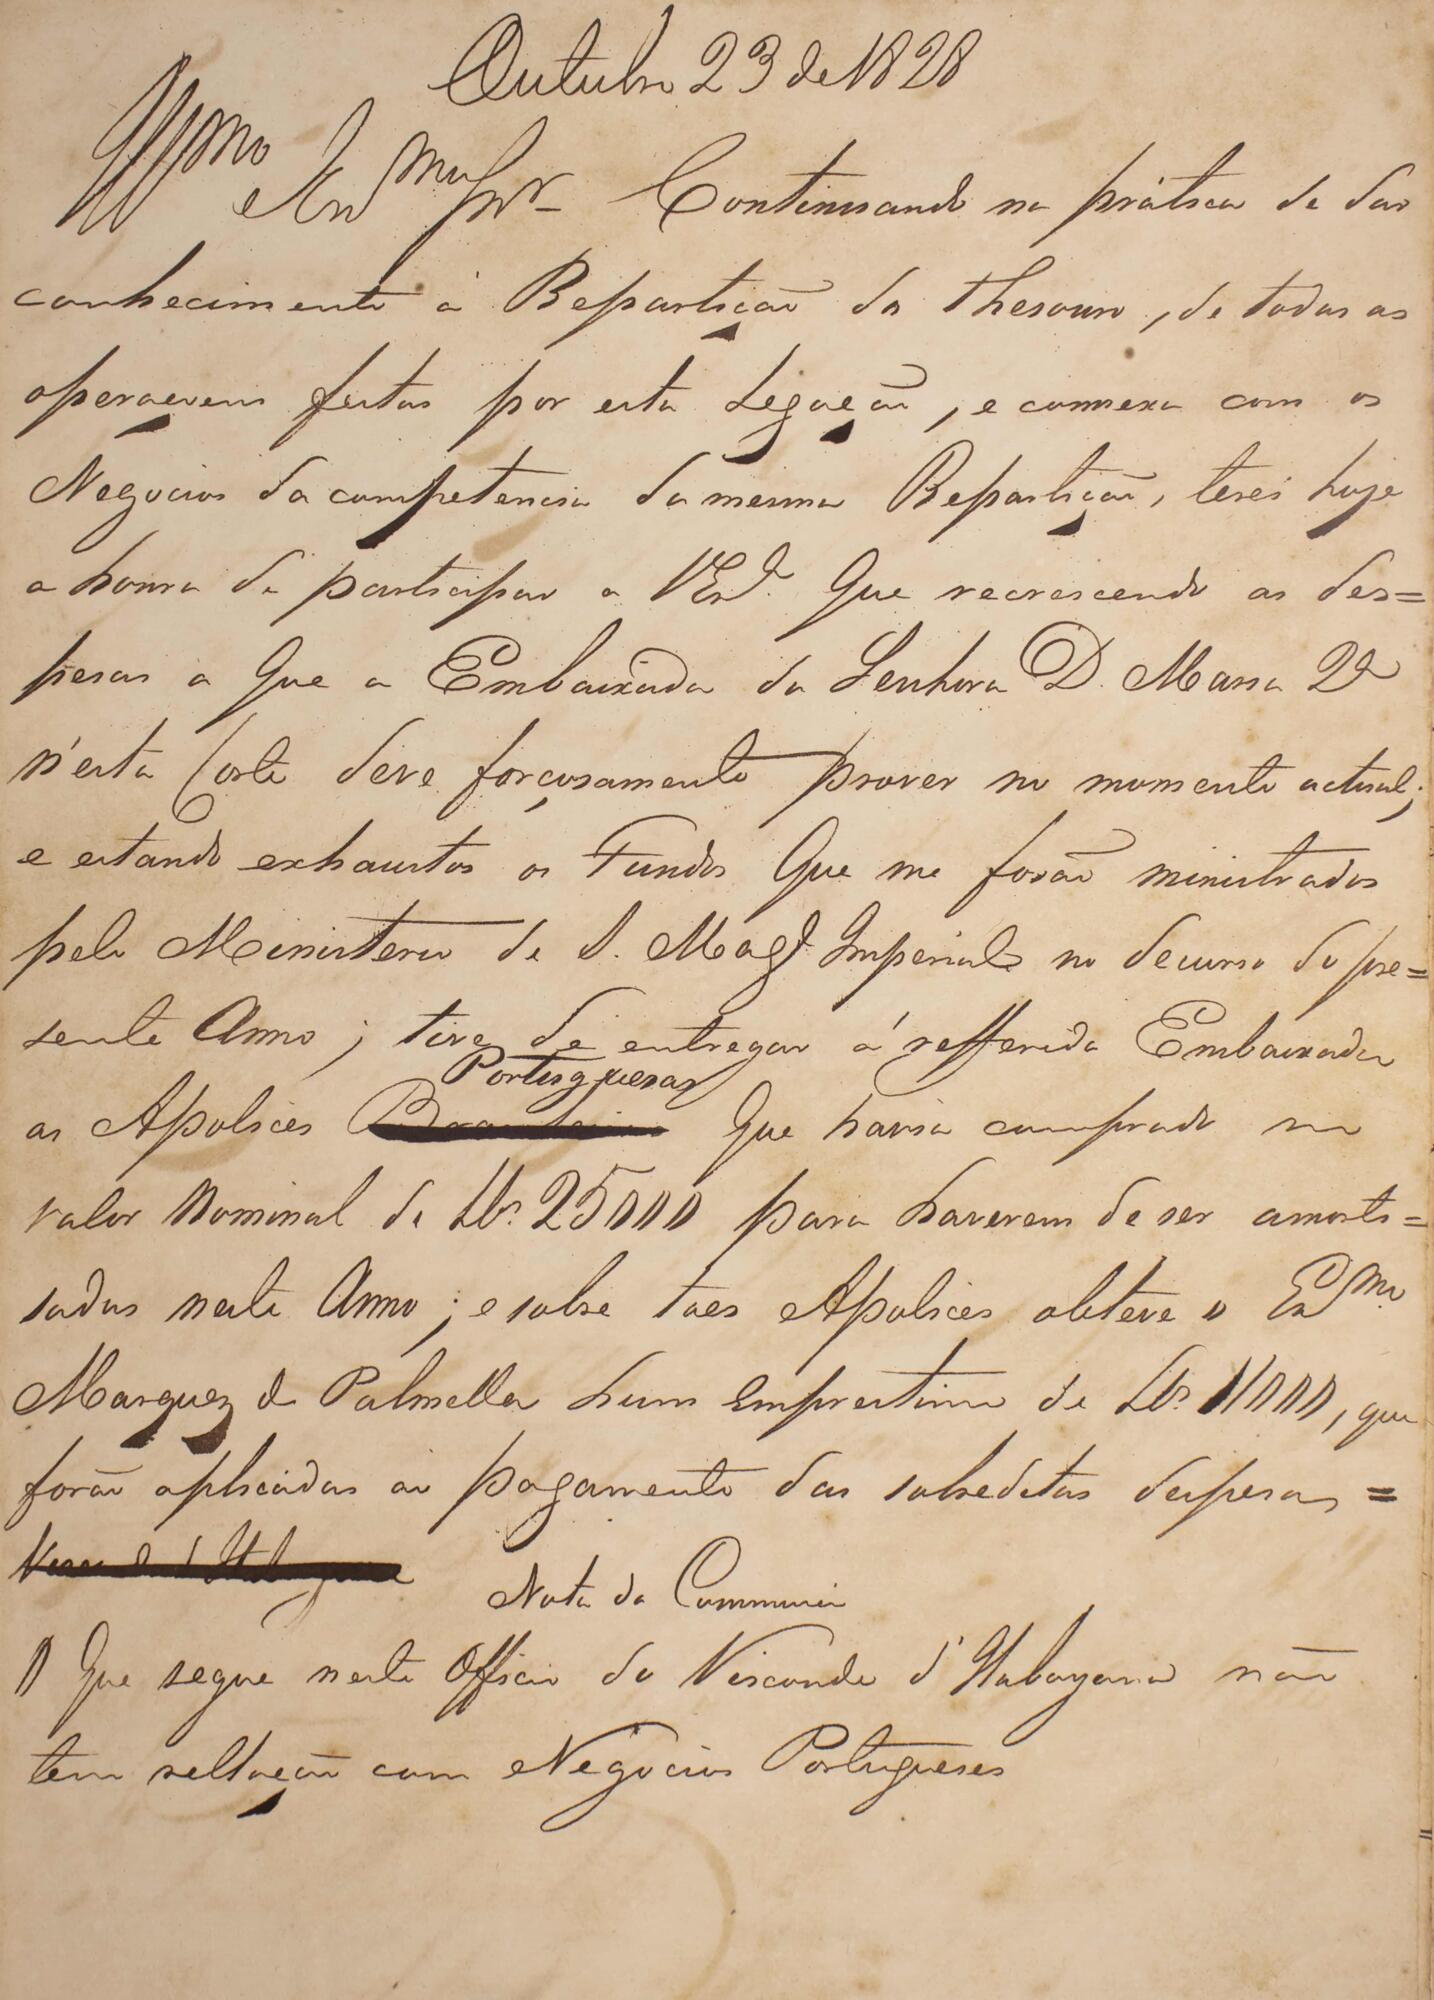 Outubro 23 de 1828
Illmo e Exmo Snr Continuando na prática de dar
conhecimento á Repartição do Thesouro, de todas as
operaçoens feitas por esta Legação, e connexa com os
Negocios da competencia da mesma Repartição, terei hoje
a honra de participar a VExa. Que recrescendo as des=
pesas a Que a Embaixada da Senhora D. Maria 2a
n'esta Corte deve forçosamente prover no momento actual;
e estando exhaustos os Fundos Que me forão ministrados
pelo Ministerio de S. Magde Imperial no decurso do pre=
sente Anno; tive de entregar á refferida Embaixada
Portuguesas
as Apolices Brasileiras Que havia comprado no
valor Nominal de Lbs. 25000 para haverem de ser amorti=
sadas neste Anno; e sobre taes Apolices obteve o Exmo.
Marquez de Palmella hum Emprestimo de Lbs. 11000, que
forão aplicadas ao pagamento das sobreditas despesas =
Visconde d'Itabayana
Nota da Commissão
O Que segue neste Officio do Visconde d'Itabayana não
tem rellação com Negocios Portugueses